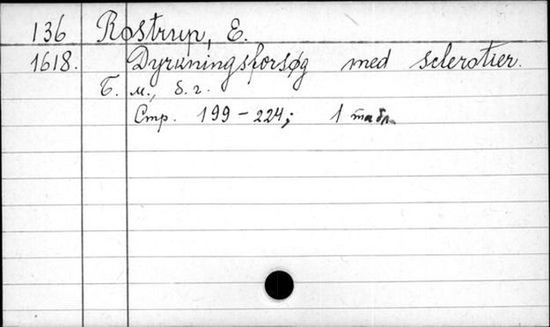 136 Rostrup, E.
1618. Dyrkningsforsøg med sclerotier.
Б. м., б. г.
Стр. 199-224; 1 табл.